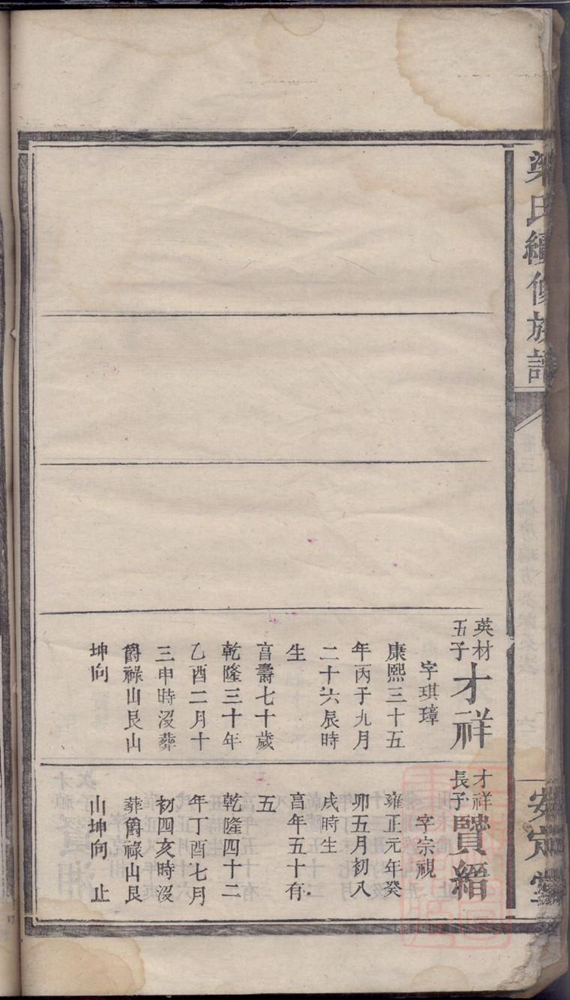 梁氏續修族譜
安定堂
英材
五子
才祥
字琪璋
康熙三十五
年丙子九月
二十六辰時
生
享壽七十歲
乾隆三十年
乙酉二月十
三申時没葬
爵祿山艮山
坤向
才祥
長子
贊縉
字宗視
雍正元年癸
卯五月初八
戌時生
享年五十有
五
乾隆四十二
年丁酉七月
初四亥時没
葬爵祿山艮
山坤向 止